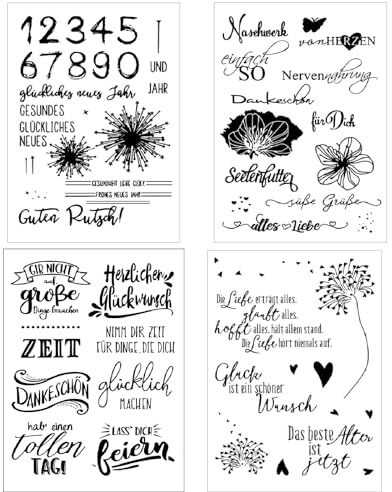 12345
67890
UND
JAHR
glückliches neues Jahr
GESUNDES
GLÜCKLICHES
NEUES
GESUNDHEIT LIEBE GLÜCK
FROHES NEUES JAHR
Guten Rutsch!
Naschwerk
von HERZEN
einfach
SO
Nervennahrung
Dankeschön
für Dich
Seelenfutter
süße Grüße
alles Liebe
GIB NICHT
auf
große
Dinge brauchen
ZEIT
DANKESCHÖN
hab' einen
tollen
TAG!
Herzlichen
Glückwunsch
NIMM DIR ZEIT
FÜR DINGE, DIE DICH
glücklich
MACHEN
LASS' DICH
feiern
Die Liebe erträgt alles,
glaubt alles,
hofft alles, hält allem stand.
Die Liebe hört niemals auf.
Glück
ist ein schöner
Wunsch
Das beste Alter
ist
jetzt